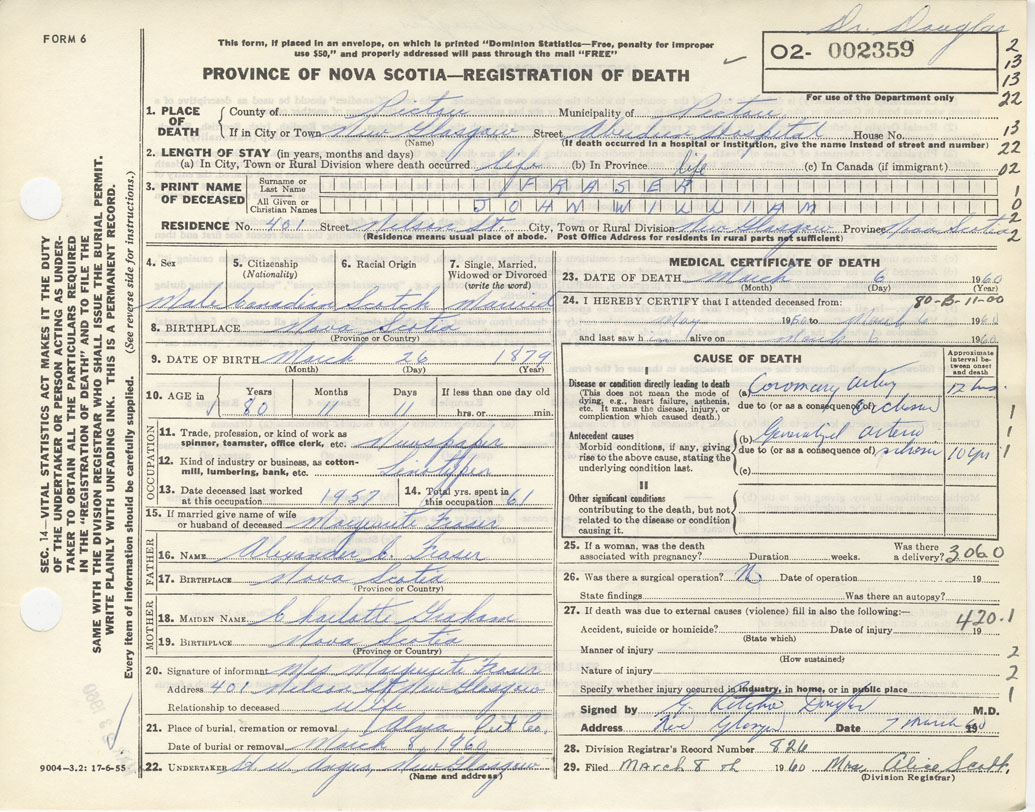 Dr. Douglas
FORM 6
This form, if placed in an envelope, on which is printed "Dominion Statistics—Free, penalty for improper
use $50," and properly addressed will pass through the mail "FREE"
PROVINCE OF NOVA SCOTIA—REGISTRATION OF DEATH
O2- 002359
For use of the Department only
2
13
13
22
1. PLACE OF DEATH County of Pictou Municipality of Pictou
If in City or Town New Glasgow Street Aberdeen Hospital House No. 13
(Name) (If death occurred in a hospital or institution, give the name instead of street and number) 22
2. LENGTH OF STAY (in years, months and days)
(a) In City, Town or Rural Division where death occurred life (b) In Province life (c) In Canada (if immigrant) 02
3. PRINT NAME OF DECEASED
Surname or Last Name FRASER
All Given or Christian Names JOHN WILLIAM
1
0
RESIDENCE No. 401 Street Nelson St. City, Town or Rural Division New Glasgow Province Nova Scotia 2
(Residence means usual place of abode. Post Office Address for residents in rural parts not sufficient) 2
4. Sex 5. Citizenship (Nationality) 6. Racial Origin 7. Single, Married, Widowed or Divorced (write the word)
Male Canadian Scotch Married
8. BIRTHPLACE Nova Scotia
(Province or Country)
9. DATE OF BIRTH March 26 1879
(Month) (Day) (Year)
10. AGE in Years Months Days If less than one day old
80 11 11 hrs. or min.
OCCUPATION
11. Trade, profession, or kind of work as spinner, teamster, office clerk, etc. Newspaper
12. Kind of industry or business, as cotton-mill, lumbering, bank, etc. Linotyper
13. Date deceased last worked at this occupation. 1957 14. Total yrs. spent in this occupation 61
15. If married give name of wife or husband of deceased Marguerite Fraser
FATHER
16. NAME Alexander Fraser
17. BIRTHPLACE Nova Scotia
(Province or Country)
MOTHER
18. MAIDEN NAME Charlotte Graham
19. BIRTHPLACE Nova Scotia
(Province or Country)
20. Signature of informant Mrs Marguerite Fraser
Address 401 Nelson St New Glasgow
Relationship to deceased wife
21. Place of burial, cremation or removal Alma Pict Co.
Date of burial or removal March 8, 1960
22. UNDERTAKER Angus, New Glasgow
(Name and address)
MEDICAL CERTIFICATE OF DEATH
23. DATE OF DEATH March 6 1960
(Month) (Day) (Year)
24. I HEREBY CERTIFY that I attended deceased from: 80-B-11-00
May 1956 to March 6 1960
and last saw h im alive on March 6 1960
CAUSE OF DEATH
Approximate interval between onset and death
I
Disease or condition directly leading to death
(This does not mean the mode of dying, e.g., heart failure, asthenia, etc. It means the disease, injury, or complication which caused death.)
(a) Coronary artery 12 hrs.
due to (or as a consequence of) occlusion 1
Antecedent causes
Morbid conditions, if any, giving rise to the above cause, stating the underlying condition last.
(b) Generalized arterio 1
due to (or as a consequence of) sclerosis 10 yrs 1
(c)
II
Other significant conditions
contributing to the death, but not related to the disease or condition causing it.
25. If a woman, was the death associated with pregnancy? Duration weeks. Was there a delivery? 3060
26. Was there a surgical operation? No Date of operation 19
State findings Was there an autopsy?
27. If death was due to external causes (violence) fill in also the following:— 420.1
Accident, suicide or homicide? Date of injury 19
(State which)
Manner of injury 2
(How sustained?)
Nature of injury 2
Specify whether injury occurred in industry, in home, or in public place 1
Signed by G. Ritchie Douglas M.D.
Address New Glasgow Date 7 March 1960
28. Division Registrar's Record Number 826
29. Filed MARCH 8 th 1960 Mrs. Alice Scott.
(Division Registrar)
SEC. 14—VITAL STATISTICS ACT MAKES IT THE DUTY
OF THE UNDERTAKER OR PERSON ACTING AS UNDER-
TAKER TO OBTAIN ALL THE PARTICULARS REQUIRED
IN THE "REGISTRATION OF DEATH" AND TO FILE THE
SAME WITH THE DIVISION REGISTRAR WHO SHALL ISSUE THE BURIAL PERMIT.
WRITE PLAINLY WITH UNFADING INK. THIS IS A PERMANENT RECORD.
Every item of information should be carefully supplied. (See reverse side for instructions.)
9004—3.2: 17-6-55